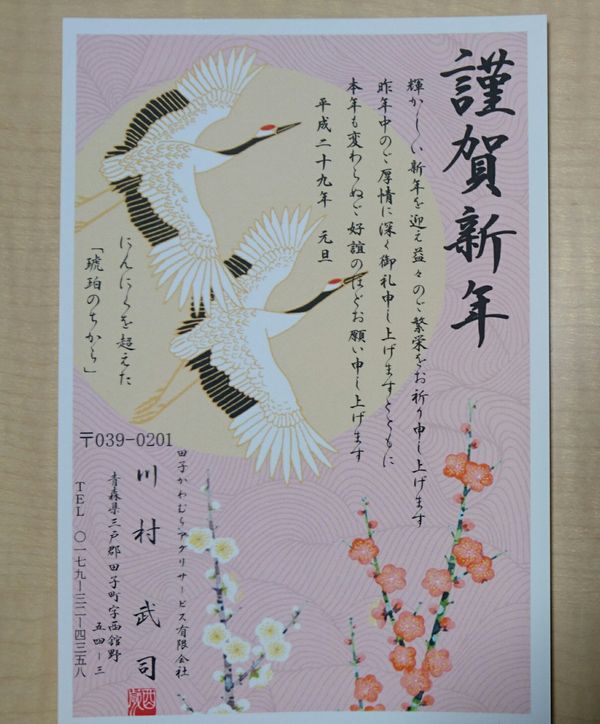 謹賀新年
輝かしい新年を迎え益々のご繁栄をお祈り申し上げます
昨年中のご厚情に深く御礼申し上げますとともに
本年も変わらぬご好誼のほどお願い申し上げます
平成二十九年 元旦
にんにくを超えた
「琥珀のちから」
〒039-0201
田子かわむらアグリサービス有限会社
川村 武司
青森県三戸郡田子町字西舘野
五四ー三
TEL 〇一七九ー三二ー四三五八